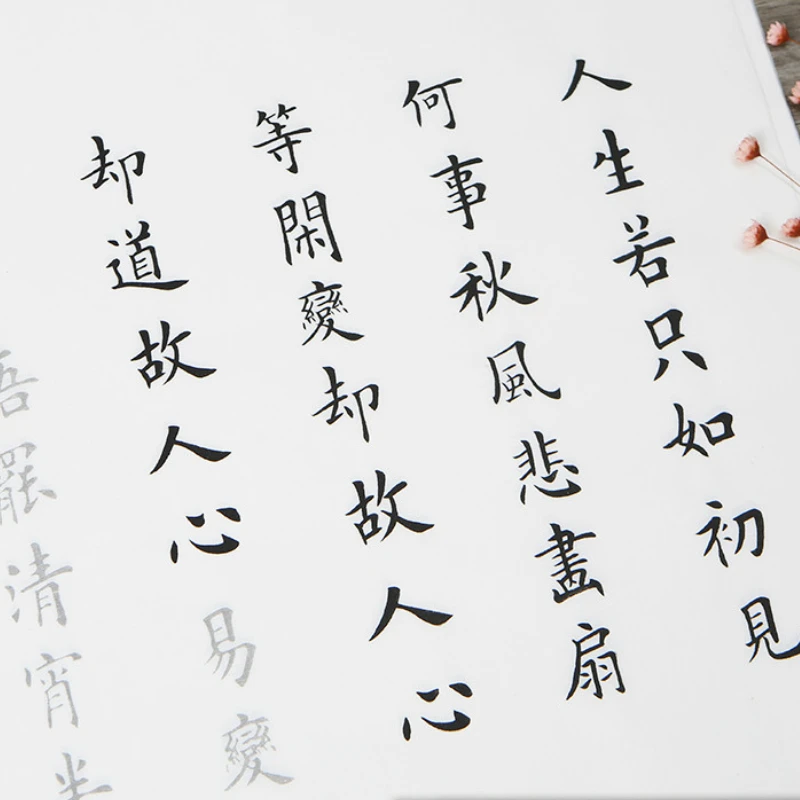 人生若只如初見
何事秋風悲畫扇
等閑變却故人心
却道故人心易變
語罷清宵半